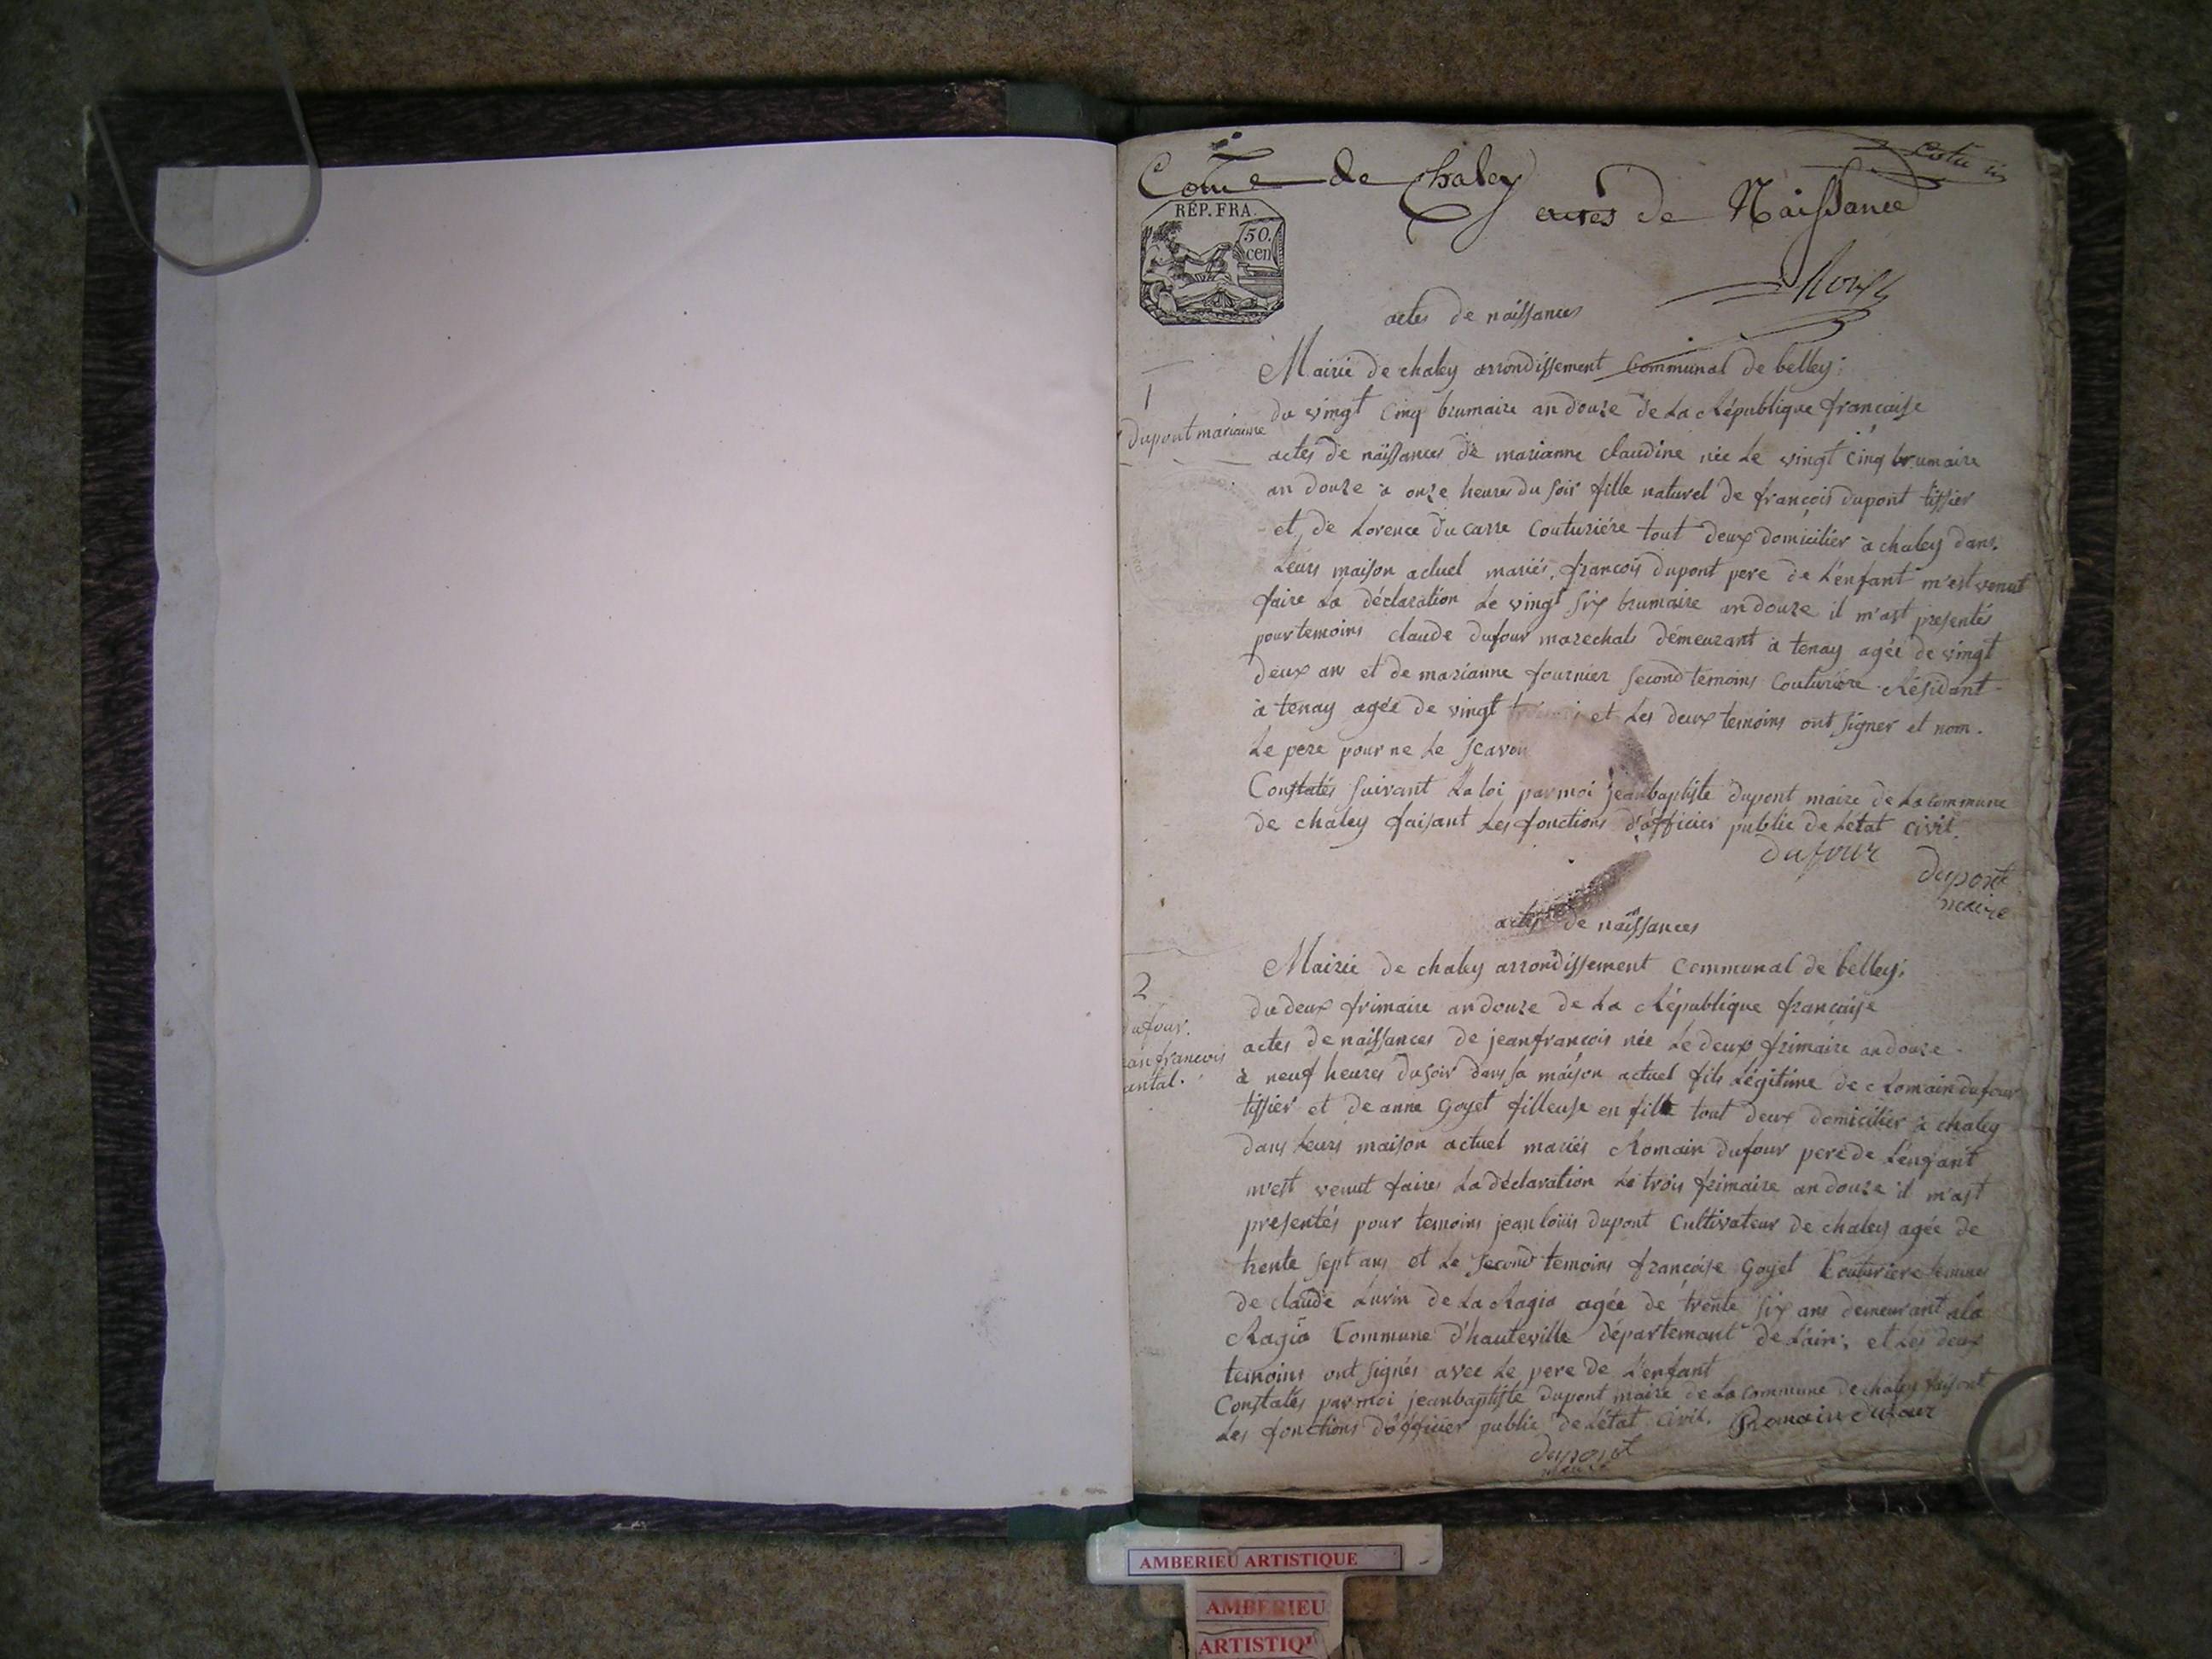 Com.e de Chaley
actes de Naissance
RÉP. FRA.
50.
cen
actes de naissances
Mairie de chaley arrondissement Communal de belley;
1
dupont marianne
du vingt cinq brumaire an douze de La République française
actes de naissances de marianne claudine née Le vingt cinq brumaire
an douze à onze heures du soir fille naturel de françois dupont tissier
et de Lorence Ducarre Couturiére tout deux domicilier à chaley dans
Leurs maison actuel mariés. françois dupont pere de L'enfant m'est venut
faire La déclaration Le vingt six brumaire an douze il m'ast presentés
pour temoins claude dufour marechals démeurant à tenay agée de vingt
deux ans et de marianne fournier second temoins Couturiére Résidant
à tenay agée de vingt et Les deux temoins ont signer et nom.
Le pere pour ne Le scavoir
Constatés suivant La loi par moi jeanbaptiste dupont maire de La commune
de chaley faisant Les fonctions d'officier public de Létat civil.
dufour
dupont
maire
actes de naissances
Mairie de chaley arrondissement Communal de belley;
2
dufour.
jean francois
du deux frimaire an douze de La République française
actes de naissances de jeanfrancois née Le deux frimaire an douze
à neuf heures du soir dans sa maison actuel fils Légitime de Romain dufour
tissier et de anne Goyet filleuse en fille tout deux domicilier à chaley
dans Leurs maison actuel mariés Romain dufour pere de L'enfant
m'est venut faires La déclaration Le trois frimaire an douze il m'ast
presentés pour temoins jean louis dupont Cultivateur de chaley agée de
trente sept ans et Le second temoins françoise Goyet Couturiere femme
de claude Luvin de La Ragia agée de trente six ans demeurant ala
Ragia Commune d'hauteville départemant de Lain; et Les deux
temoins ont signés avec Le pere de L'enfant
Constatés par moi jeanbaptiste dupont maire de La commune de chaley faisant
Les fonctions d'officier public de Létat civil. Romain dufour
dupont
maire
AMBERIEU ARTISTIQUE
AMBERIEU
ARTISTIQU